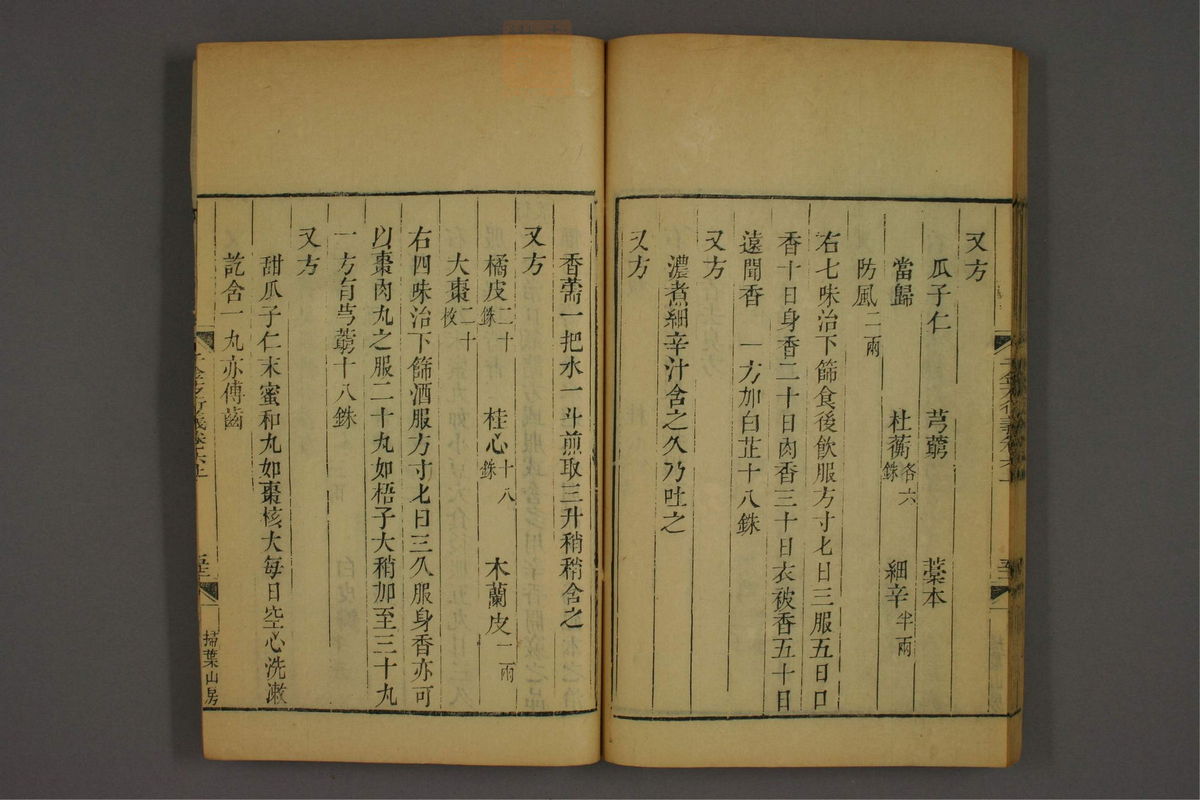 又方
瓜子仁 芎藭 藁本
當歸 杜蘅各六銖 細辛半兩
防風二兩
右七味治下篩食後飲服方寸匕日三服五日口
香十日身香二十日肉香三十日衣被香五十日
遠聞香 一方加白芷十八銖
又方
濃煮細辛汁含之久乃吐之
又方
香薷一把水一斗煎取三升稍稍含之
又方
橘皮二十銖 桂心十八銖 木蘭皮一兩
大棗二十枚
右四味治下篩酒服方寸匕日三久服身香亦可
以棗肉丸之服二十丸如梧子大稍加至三十丸
一方有芎藭十八銖
又方
甜瓜子仁末蜜和丸如棗核大每日空心洗漱
訖含一丸亦傅齒
掃葉山房